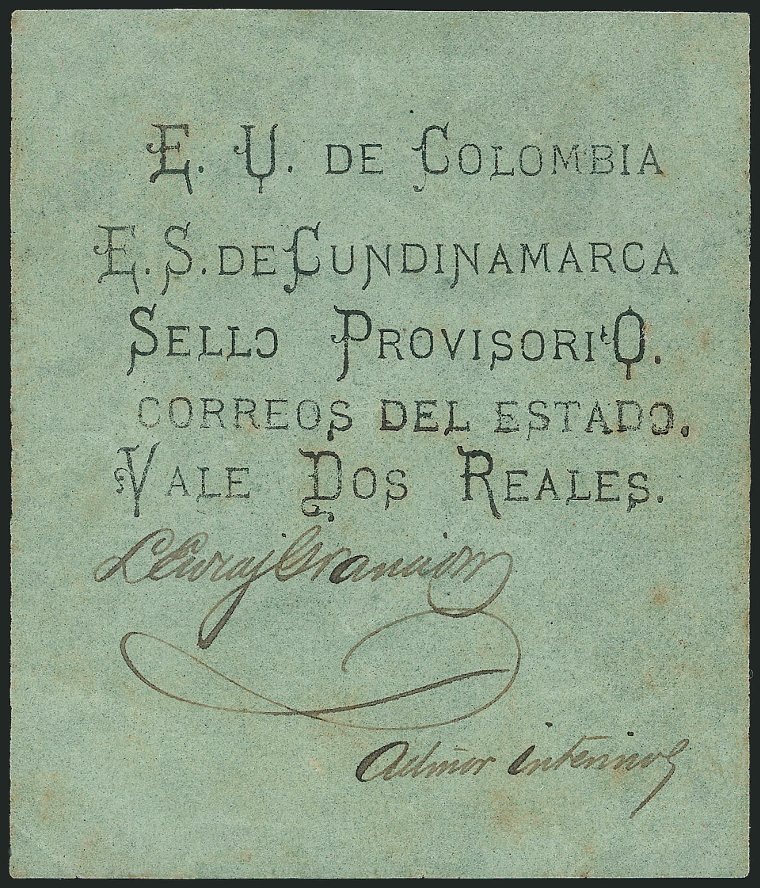 E. U. DE COLOMBIA
E. S. DE CUNDINAMARCA
SELLO PROVISORIO.
CORREOS DEL ESTADO.
VALE DOS REALES.
Admor interino